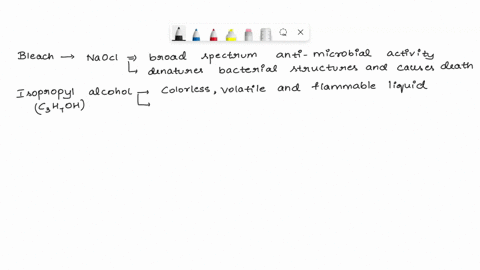 Bleach → NaOCl ⇒ broad spectrum anti-microbial activity
↳ denatures bacterial structures and causes death
Isopropyl alcohol → Colorless, volatile and flammable liquid
(C₃H₇OH) →